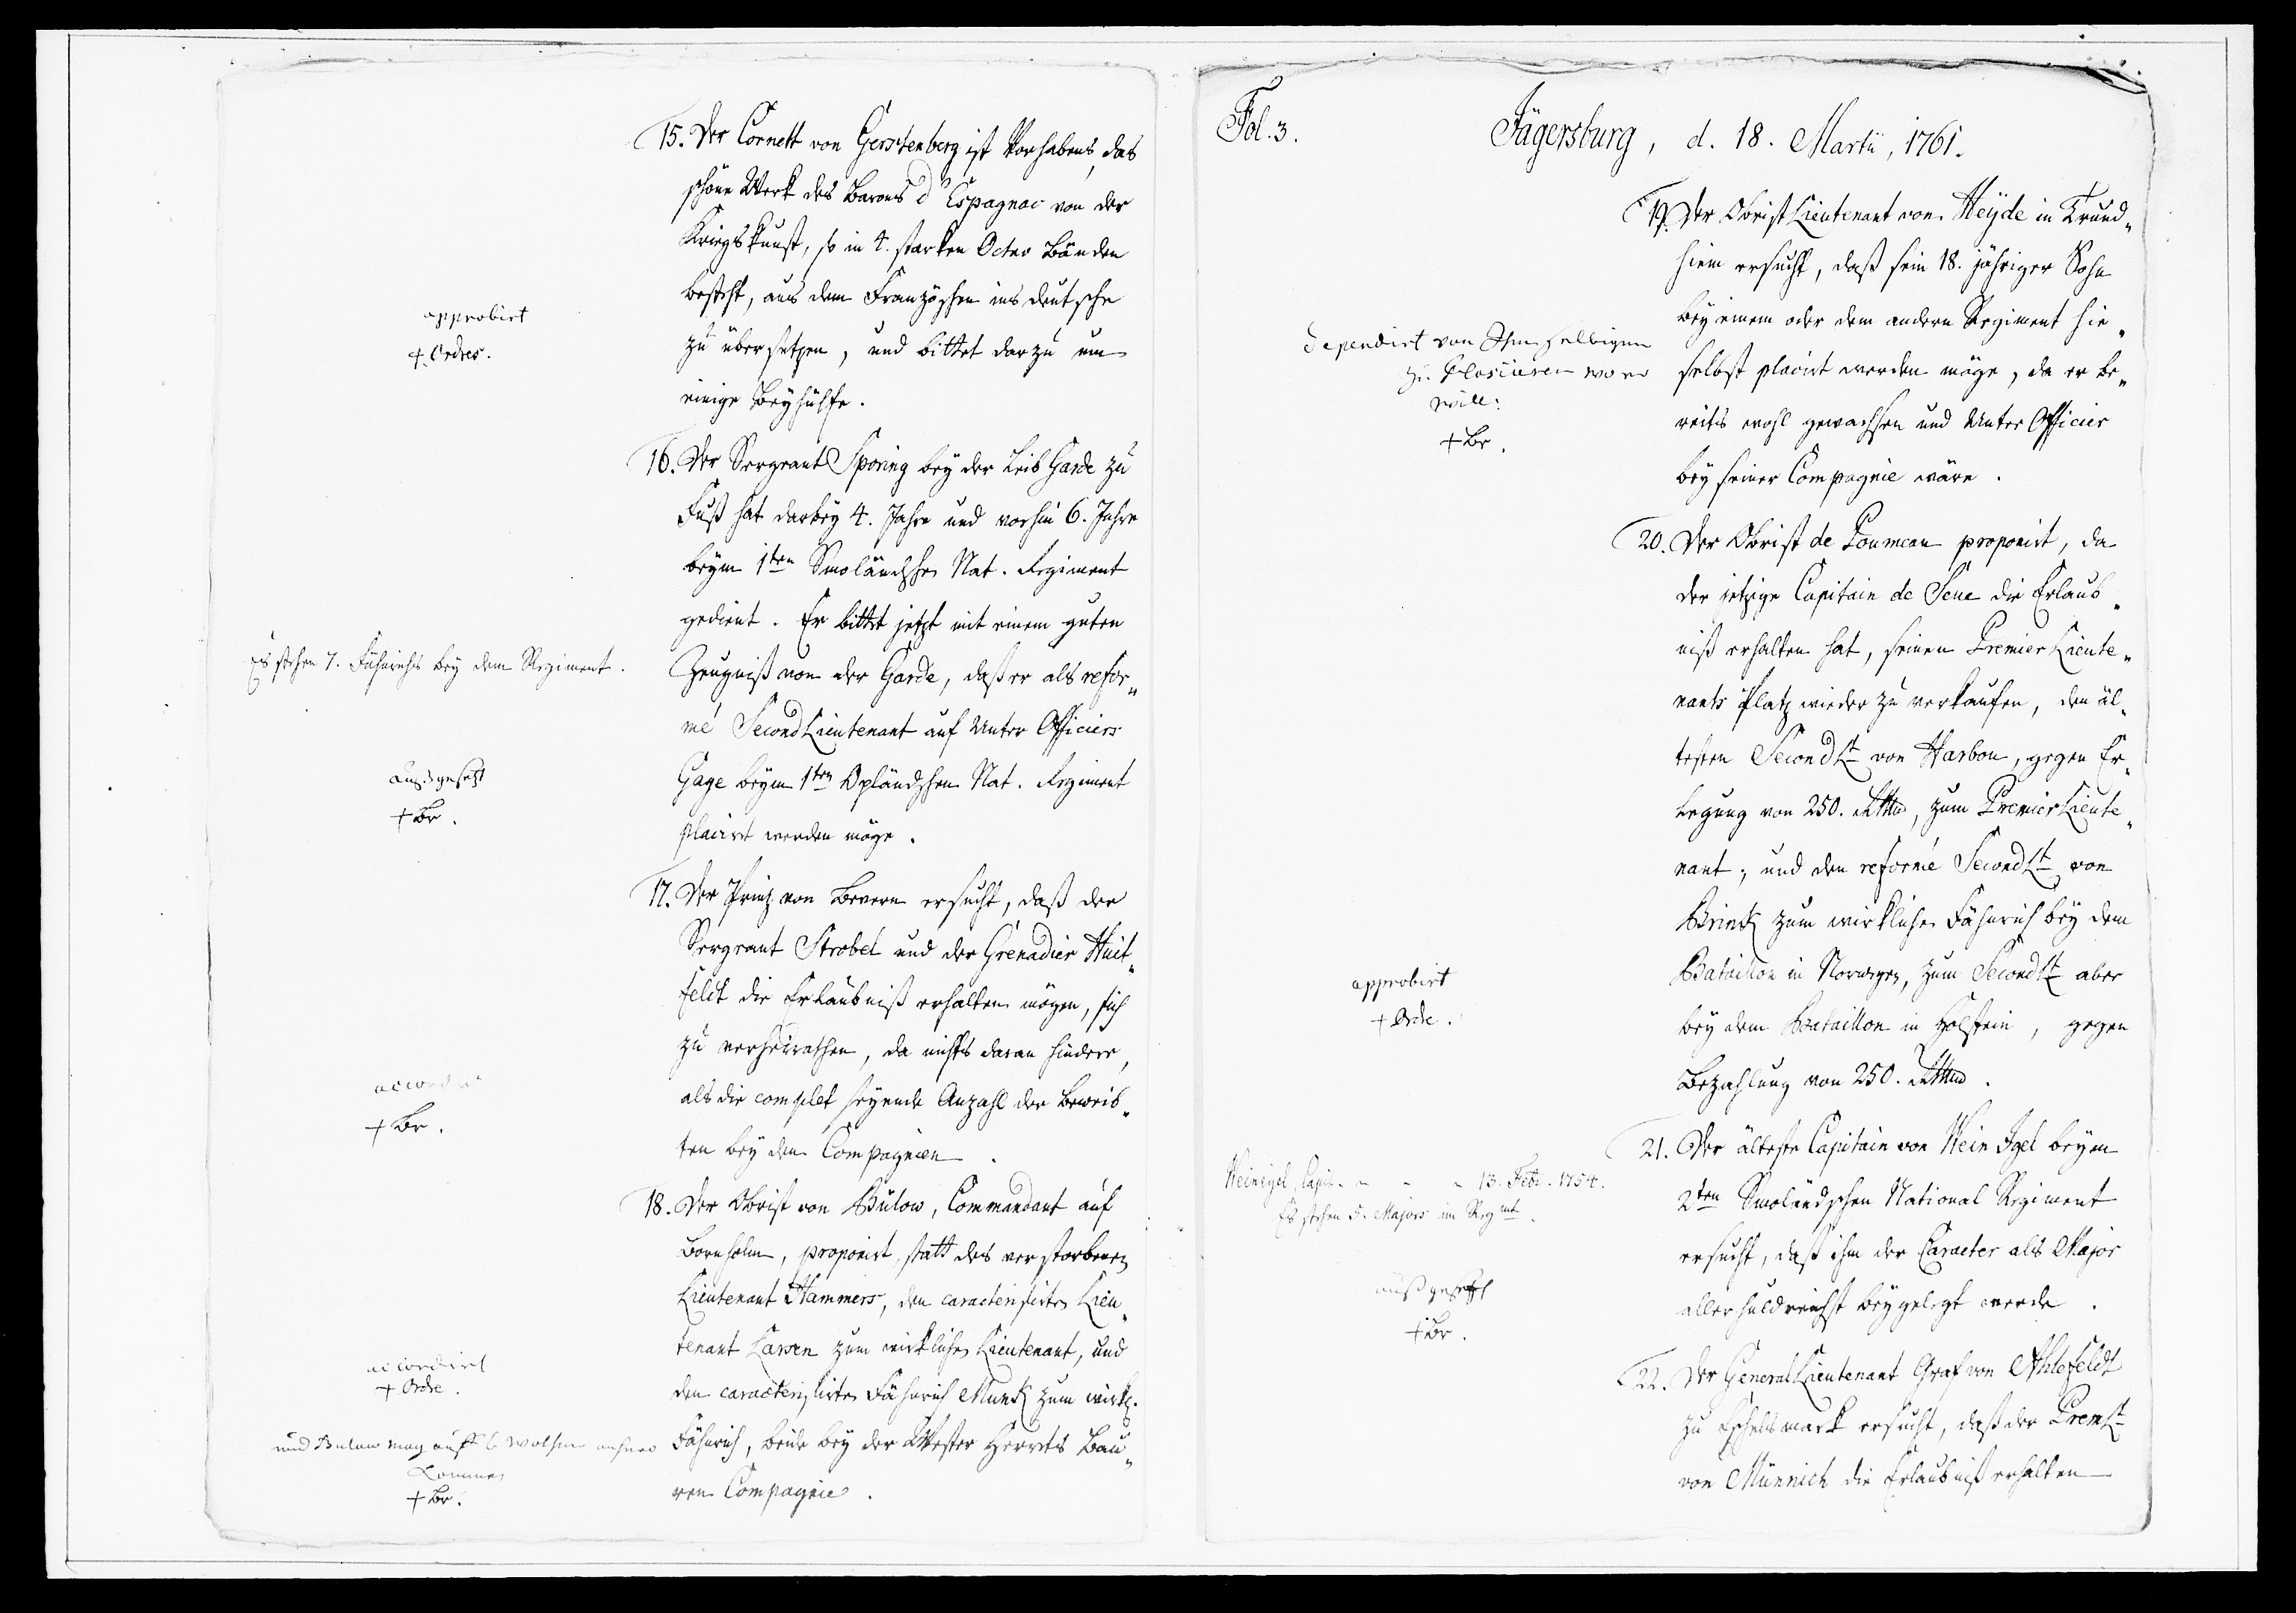 15. Der Cornett von Gerstenberg ist Vorhabens, das
schöne Werk des Barons d'Espagnac von der
Kriegskunst, so in 4. starken Octav Bänden
besteht, aus dem Französchen ins deutsche
zu übersetzen, und bittet darzu um
einige Beyhülffe.
approbirt
+ Ordres.
16. Der Sergeant Sporing bey der Leib Garde zu
Fuß hat darbey 4. Jahre und vorhin 6. Jahre
beym 1ten Smoländschen Nat. Regiment
gedient. Er bittet jetzt mit einem guten
Zeugniß von der Garde, daß er als refor„
mé Second Lieutenant auf Unter Officiers
Gage beym 1ten Opländschen Nat. Regiment
placirt werden möge.
Es stehen 7. Fähnrichs bey dem Regiment.
außgesetzt
+ Br.
17. Der Prinz von Bevern ersucht, daß der
Sergeant Strobel und der Grenadier Huit„
feldt die Erlaubniß erhalten mögen, sich
zu verheirathen, da nichts daran hindere,
als die complet seyende Anzahl der beweib„
ten bey den Compagnien.
accordirt
+ Br.
18. Der Obrist von Bülow, Commandant auf
Bornholm, proponirt, statt des verstorbenen
Lieutenant Hammers, den caracterisirten Lieu„
tenant Larsen zum wirklichen Lieutenant, und
den caracterisirten Fähnrich Munk zum wirkl.
Fähnrich, beide bey der Wester Herrets Bau„
ren Compagnie.
accordirt
+ Ordre.
und Bulow mag auff 6 wochen anhero
kommen
+ Br.
Fol. 3.
Jägersburg, d. 18. Martii, 1761.
19. Der Obrist Lieutenant von Heyde in Trund„
hiem ersucht, daß sein 18. jähriger Sohn
bey einem oder dem andern Regiment hie„
selbst placirt werden möge, da er be„
reits wohl gewachsen und Unter Officier
bey seiner Compagnie wäre.
dependirt von Ihm selbigen
zu Plasiren wo er
will:
+ Br.
20. Der Obrist de Poumeau proponirt, da
der jetzige Capitain de Seue die Erlaub„
niß erhalten hat, seinen Premier Lieute„
nants Platz wieder zu verkaufen, den äl„
testen Second Lt von Harbou, gegen Er„
legung von 250. Rthlr, zum Premier Lieute„
nant; und den reformé Second Lt von
Brink zum wirklichen Fähnrich bey dem
Bataillon in Norwegen, zum Second Lt aber
bey dem Bataillon in Holstein, gegen
Bezahlung von 250. Rthlr.
approbirt
+ Ordre.
21. Der älteste Capitain von Wein Igel beym
2ten Smoländschen National Regiment
ersucht, daß ihm der Caracter als Major
allerhuldreichst beygelegt werde.
Weinigel, Capit. - - - 13. Febr. 1754.
Es stehen 5. Majors im Regmt.
außgesetzt
+ Br.
22. Der General Lieutenant Graf von Ahlefeldt
zu Eschelsmark ersucht, daß der Prem Lt
von Münnich die Erlaubniß erhalten